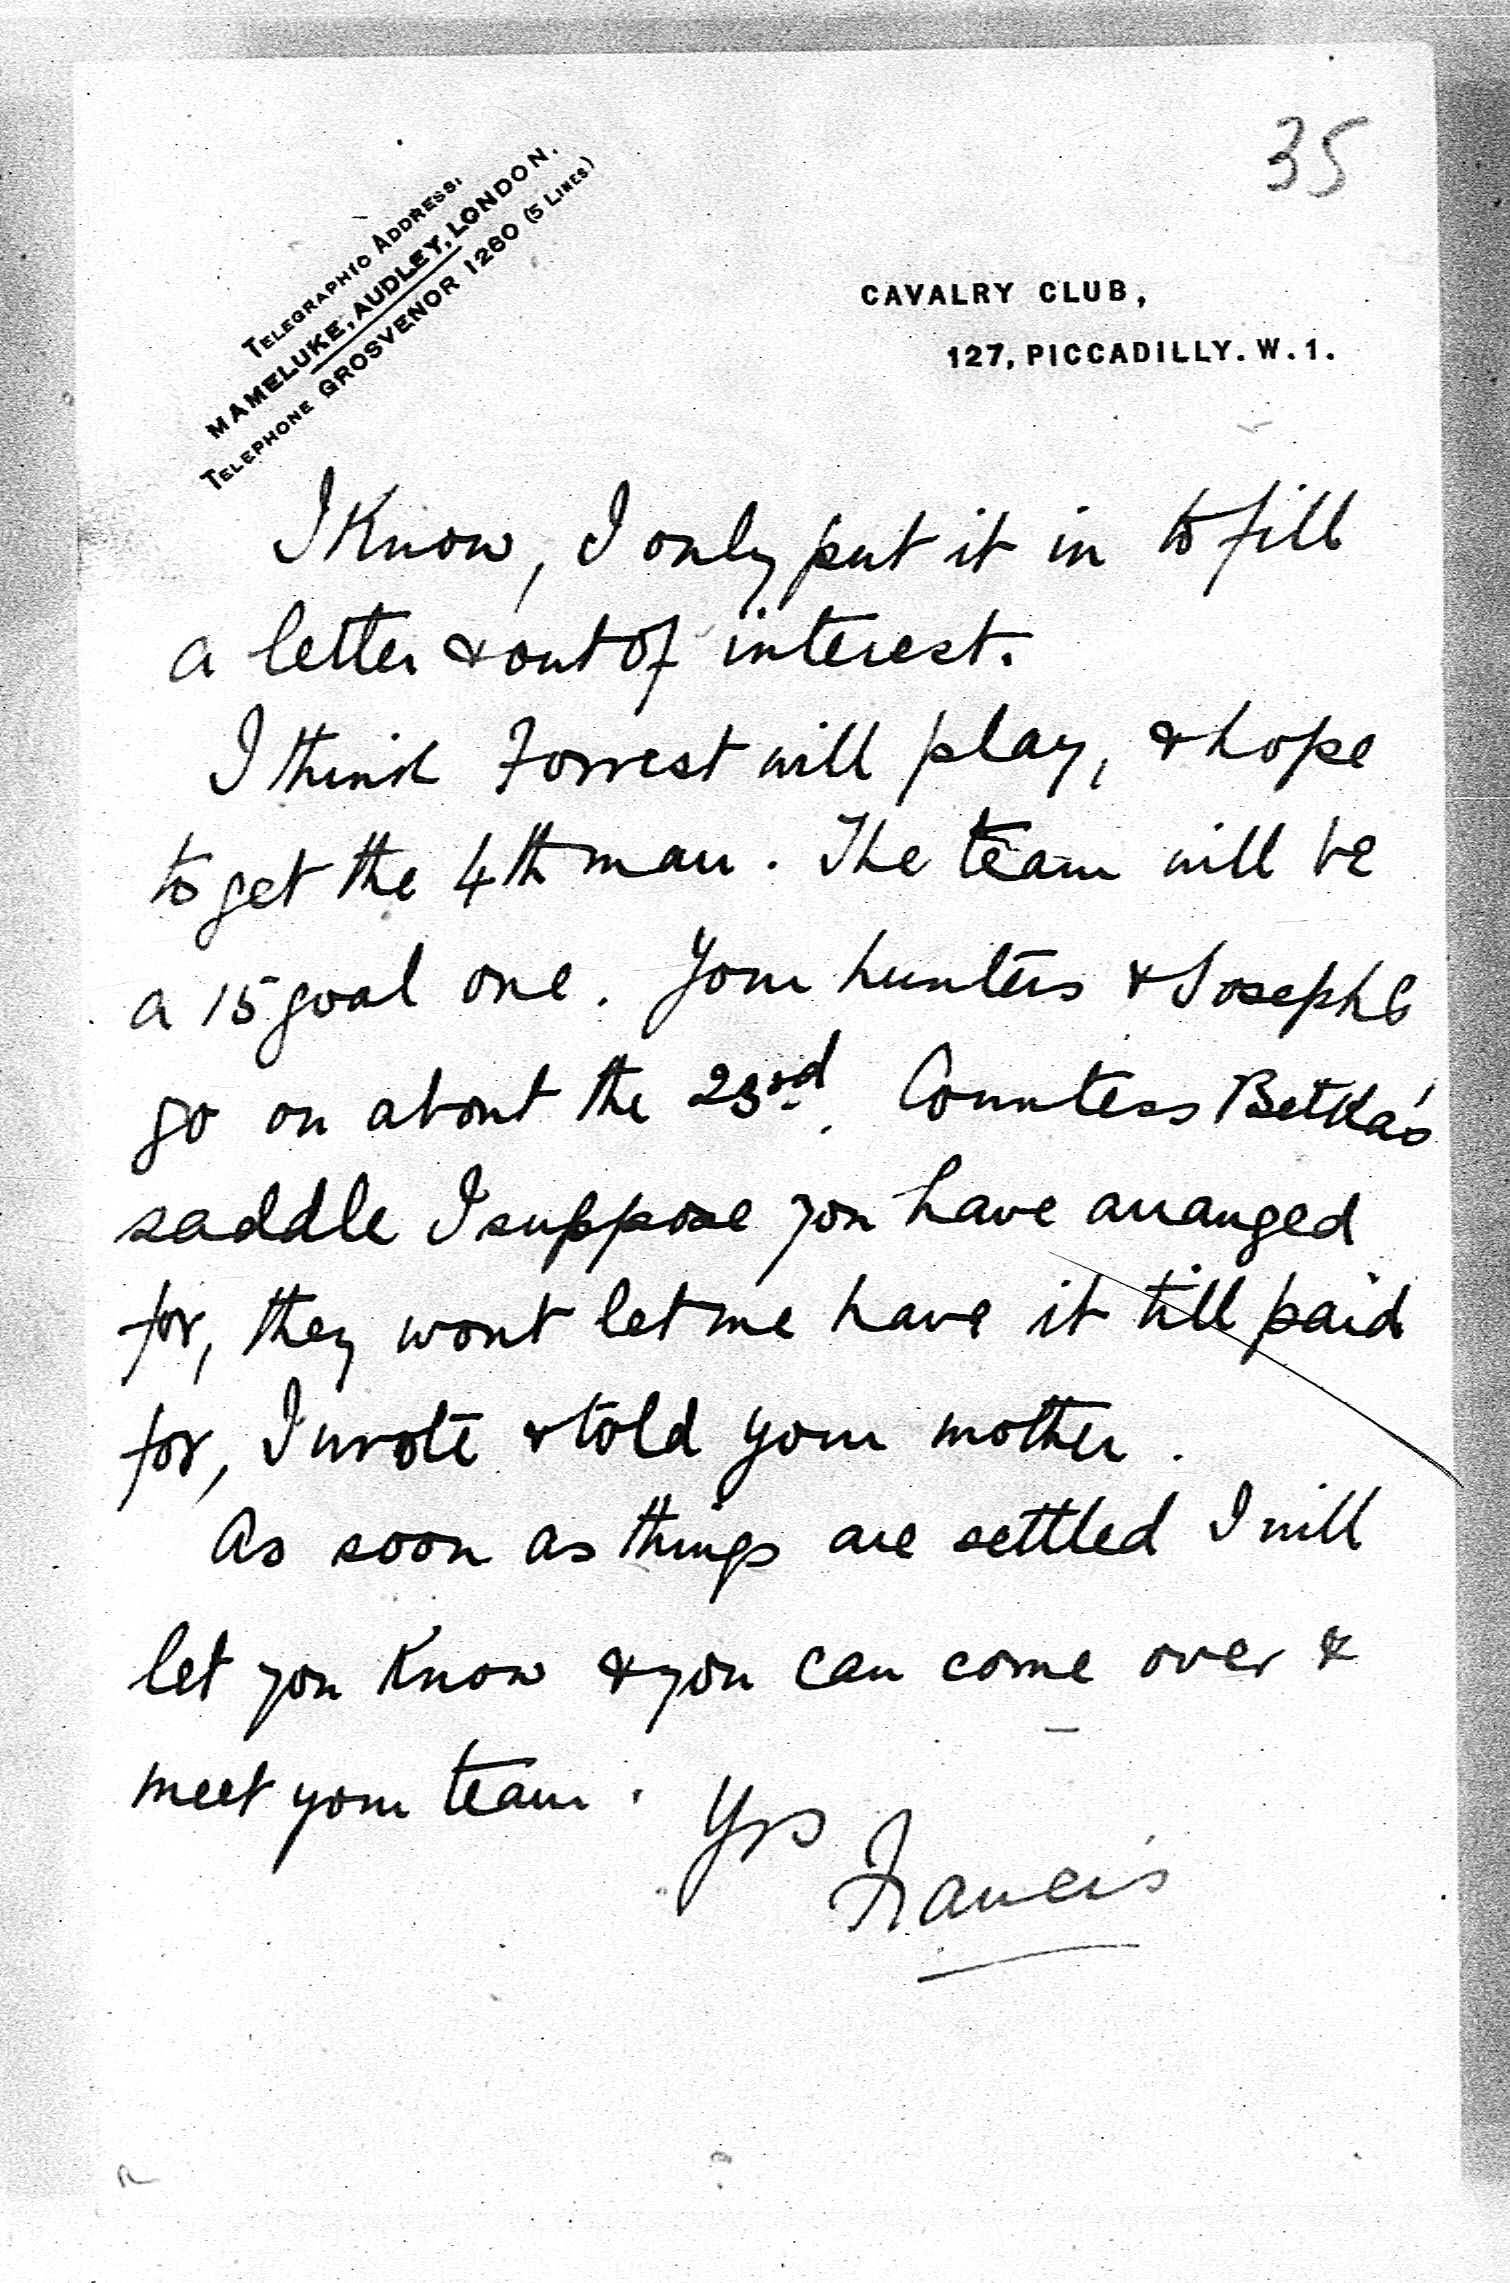 35
TELEGRAPHIC ADDRESS:
MAMELUKE, AUDLEY, LONDON.
TELEPHONE GROSVENOR 1260 (5 LINES)
CAVALRY CLUB,
127, PICCADILLY. W. 1.
I Know, I only put it in to fill
a letter & out of interest.
I think Forrest will play, & hope
to get the 4th man. The team will be
a 15 goal one. Your hunters & Josephs
go on about the 23rd. Countess Betka's
saddle I suppose you have arranged
for, they wont let me have it till paid
for, I wrote & told your mother.
As soon as things are settled I will
let you Know & you can come over &
meet your team. Yrs
Francis